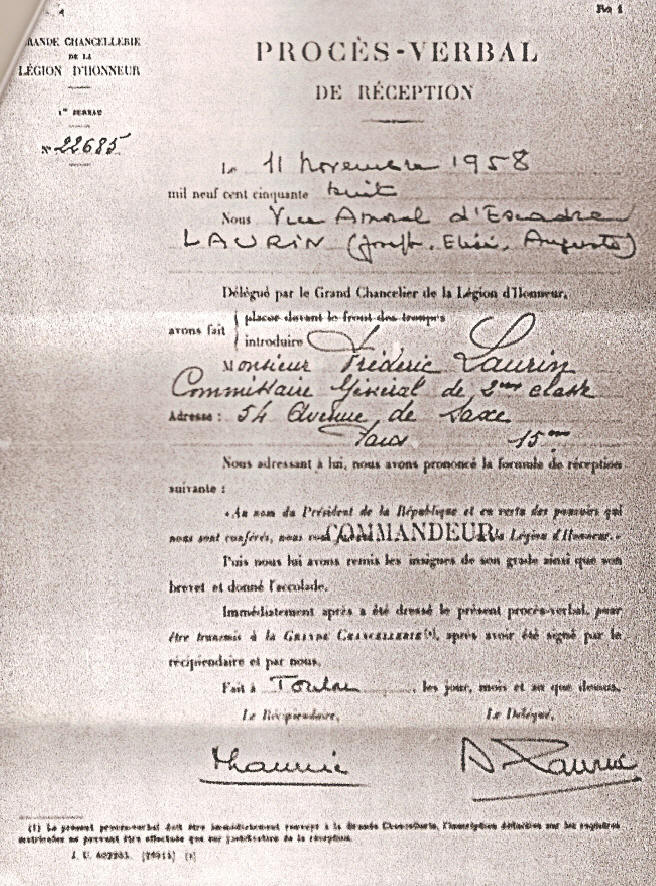 RANDE CHANCELLERIE
DE LA
LÉGION D'HONNEUR
1er BUREAU
N° 22685
PROCÈS-VERBAL
DE RÉCEPTION
Le 11 Novembre 1958
mil neuf cent cinquante huit
Nous Vice Amiral d'Escadre
LAURIN (Joseph, Elisé, Auguste)
Délégué par le Grand Chancelier de la Légion d'Honneur,
placer devant le front des troupes
avons fait
introduire
Monsieur Frédéric Laurin
Commissaire Général de 2ème classe
Adresse : 54 Avenue de Saxe
Paris 15ème
Nous adressant à lui, nous avons prononcé la formule de réception
suivante :
« Au nom du Président de la République et en vertu des pouvoirs qui
nous sont conférés, nous vous COMMANDEUR la Légion d'Honneur. »
Puis nous lui avons remis les insignes de son grade ainsi que son
brevet et donné l'accolade.
Immédiatement après a été dressé le présent procès-verbal, pour
être transmis à la GRANDE CHANCELLERIE(1), après avoir été signé par le
récipiendaire et par nous.
Fait à Toulon, les jour, mois et an que dessus.
Le Récipiendaire, Le Délégué,
(1) Le présent procès-verbal doit être immédiatement renvoyé à la Grande Chancellerie, l'inscription définitive sur les registres
matricules ne pouvant être effectuée que sur justification de la réception.